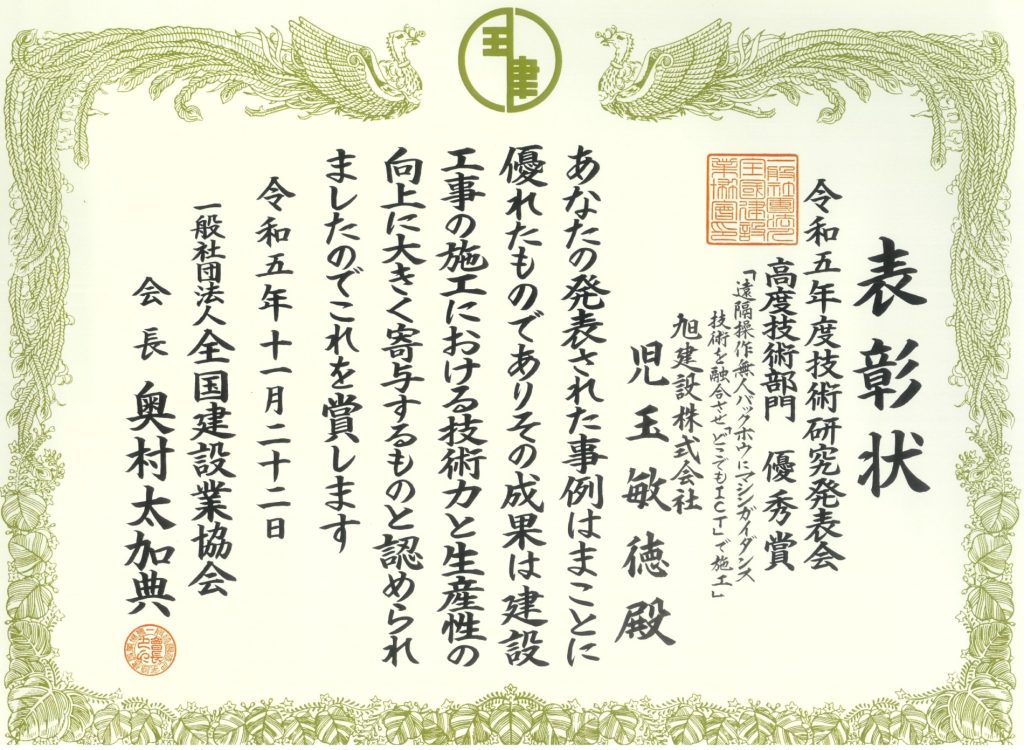 全建
表彰状
令和五年度技術研究発表会
高度技術部門 優秀賞
「遠隔操作無人バックホウにマシンガイダンス
技術を融合させ「どこでもICT」で施工」
旭建設株式会社
児玉敏徳殿
あなたの発表された事例はまことに
優れたものでありその成果は建設
工事の施工における技術力と生産性の
向上に大きく寄与するものと認められ
ましたのでこれを賞します
令和五年十一月二十二日
一般社団法人全国建設業協会
会長 奥村太加典